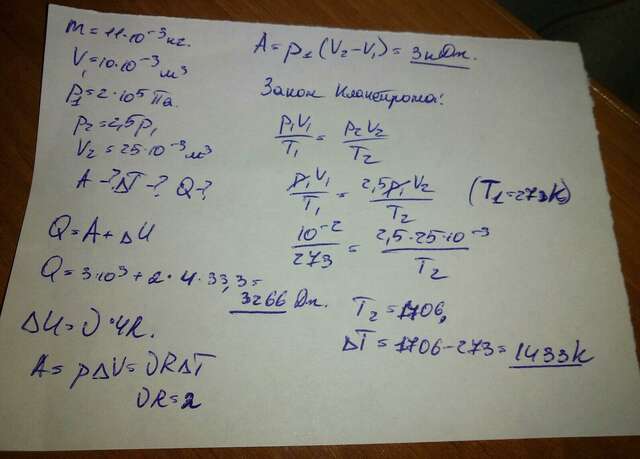 m = 11·10⁻³ кг.
V₁ = 10·10⁻³ м³
p₁ = 2·10⁵ Па.
p₂ = 2,5p₁
V₂ = 25·10⁻³ м³
A - ? ΔT - ? Q - ?
Q = A + ΔU
Q = 3·10³ + 2·4·33,3 =
3266 Дж.
ΔU = υ·4R.
A = pΔV = υRΔT
υR = 2
A = p₁(V₂ - V₁) = 3кДж.
Закон Клапейрона:
p₁V₁/T₁ = p₂V₂/T₂
p₁V₁/T₁ = 2,5p₁V₂/T₂ (T₁ = 273k)
10⁻²/273 = 2,5·25·10⁻³/T₂
T₂ = 1706,
ΔT = 1706 - 273 = 1433k